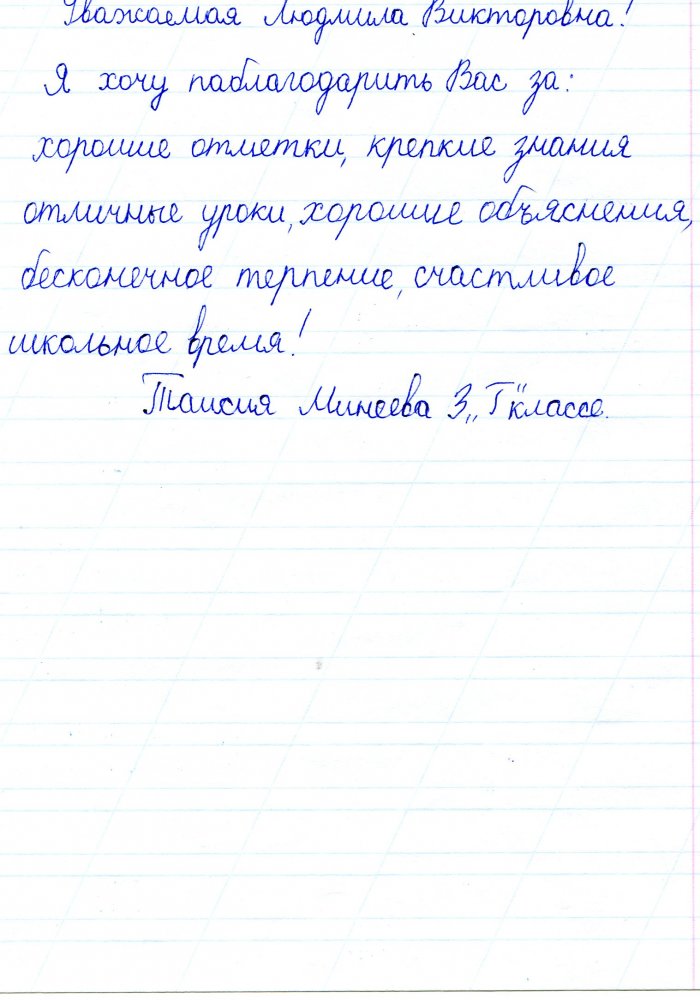 Уважаемая Людмила Викторовна!
Я хочу паблагодарить Вас за:
хорошие отметки, крепкие знания
отличные уроки, хорошие объяснения,
бесконечное терпение, счастливое
школьное время!
Таисия Минеева 3 „Г“ классе.